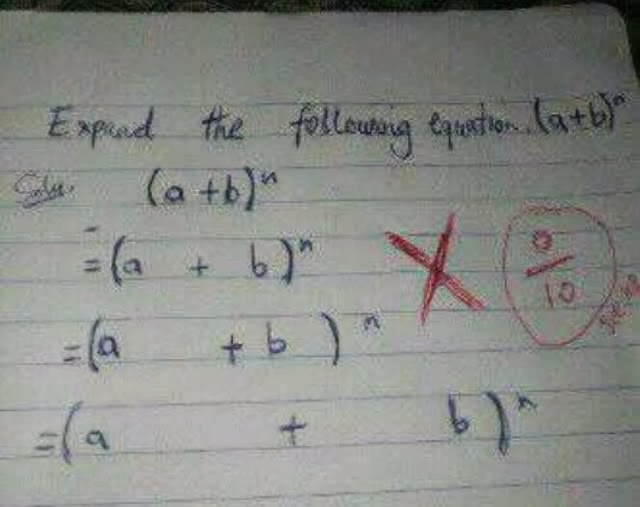 Expand the following equation. (a+b)ⁿ
Soln. (a+b)ⁿ
= (a + b)ⁿ
0
10
= (a + b)ⁿ
= (a + b)ⁿ